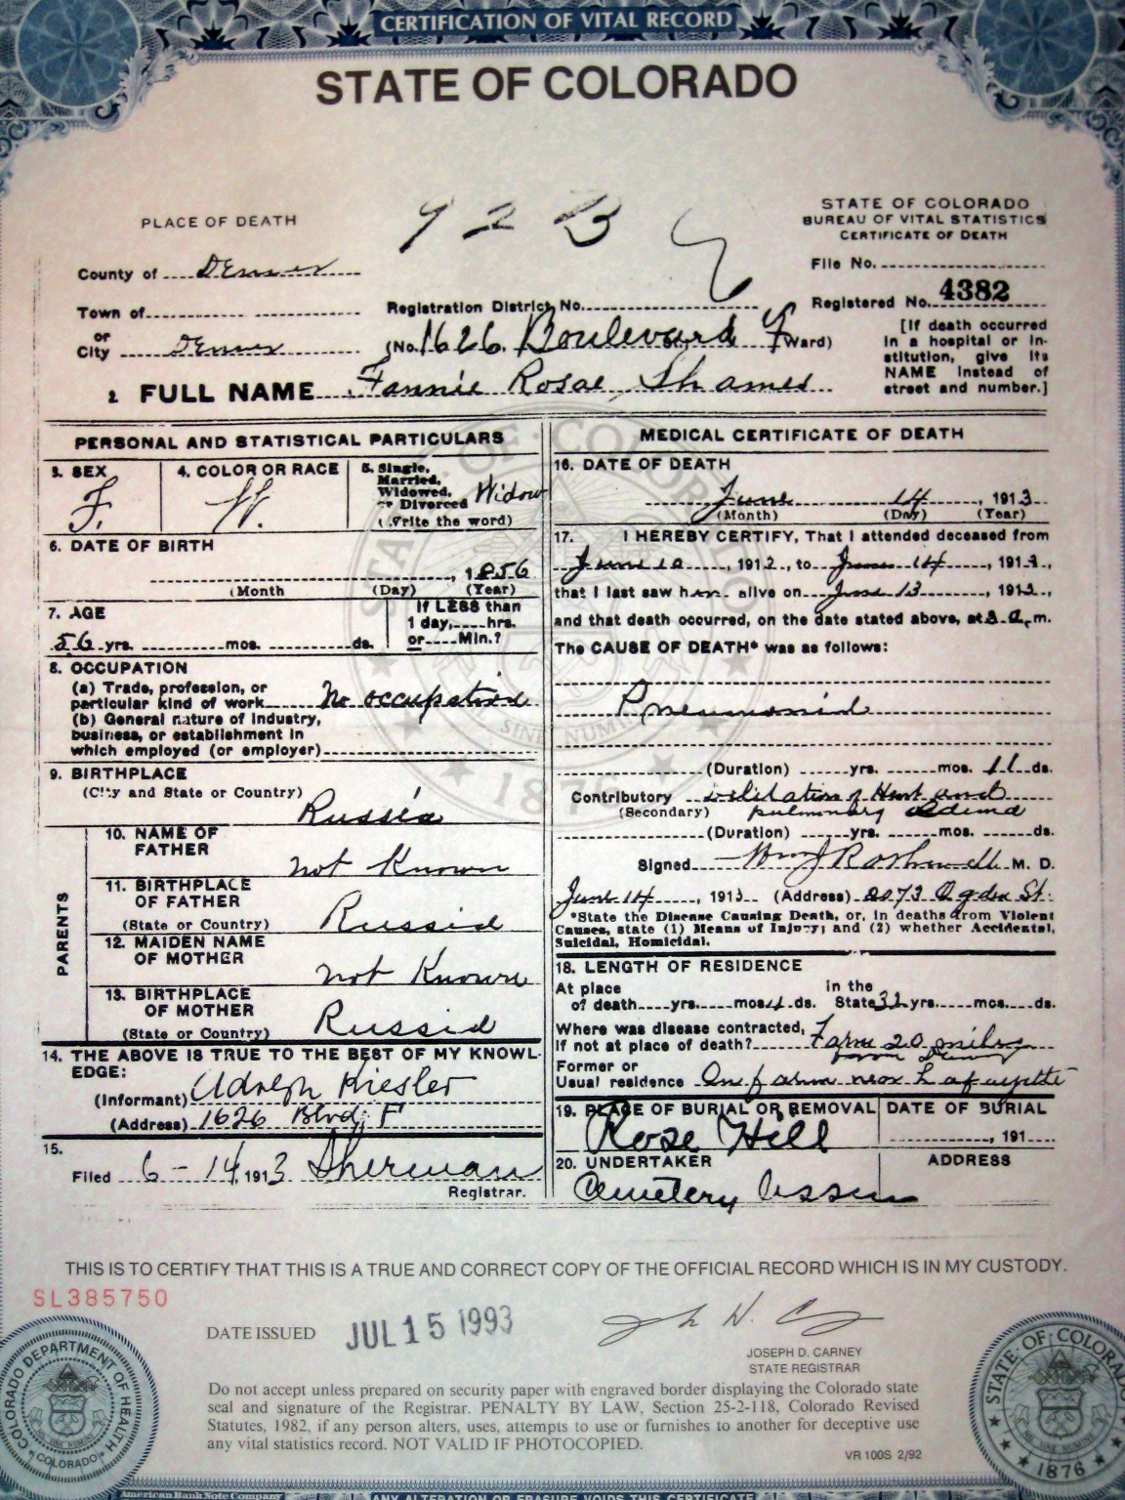 CERTIFICATION OF VITAL RECORD
STATE OF COLORADO
PLACE OF DEATH
923
STATE OF COLORADO
BUREAU OF VITAL STATISTICS
CERTIFICATE OF DEATH
County of Denver
File No.
Town of
Registration District No.
Registered No. 4382
or
City Denver
(No. 1626 Boulevard F Ward)
[If death occurred
in a hospital or in-
stitution, give its
NAME instead of
street and number.]
2 FULL NAME Fannie Rosae Shames
PERSONAL AND STATISTICAL PARTICULARS
3. SEX
F.
4. COLOR OR RACE
W.
5. Single,
Married,
Widowed,
or Divorced
(Write the word)
Widow
6. DATE OF BIRTH
, 1856
(Month (Day) (Year)
7. AGE
56 yrs. mos. ds.
If LESS than
1 day, hrs.
or Min.?
8. OCCUPATION
(a) Trade, profession, or
particular kind of work No occupation
(b) General nature of industry,
business, or establishment in
which employed (or employer)
9. BIRTHPLACE
(City and State or Country)
Russia
PARENTS
10. NAME OF
FATHER
not Known
11. BIRTHPLACE
OF FATHER
(State or Country) Russia
12. MAIDEN NAME
OF MOTHER
not Known
13. BIRTHPLACE
OF MOTHER
(State or Country) Russia
14. THE ABOVE IS TRUE TO THE BEST OF MY KNOWL-
EDGE:
(Informant) Adolph Kiesler
(Address) 1626 Blvd F
15.
Filed 6-14, 1913 Sherman
Registrar.
MEDICAL CERTIFICATE OF DEATH
16. DATE OF DEATH
June 14, 1913
(Month) (Day) (Year)
17. I HEREBY CERTIFY, That I attended deceased from
June 10, 1913, to June 14, 1913,
that I last saw her alive on June 13, 1913,
and that death occurred, on the date stated above, at 8 a. m.
The CAUSE OF DEATH* was as follows:
Pneumonia
(Duration) yrs. mos. 11 ds.
Contributory dilitation of Heart and
(Secondary) pulmonary oedema
(Duration) yrs. mos. ds.
Signed Wm J Rothwell M. D.
June 14, 1913 (Address) 2073 Ogden St.
*State the Disease Causing Death, or, in deaths from Violent
Causes, state (1) Means of Injury; and (2) whether Accidental,
Suicidal, Homicidal.
18. LENGTH OF RESIDENCE
At place
of death yrs. mos. 11 ds.
In the
State yrs. mos. ds.
Where was disease contracted,
If not at place of death? Farm 20 miles
from Denver
Former or
Usual residence On farm near Lafayette
19. PLACE OF BURIAL OR REMOVAL
Rose Hill
DATE OF BURIAL
, 191
20. UNDERTAKER
Cemetery Assn
ADDRESS
THIS IS TO CERTIFY THAT THIS IS A TRUE AND CORRECT COPY OF THE OFFICIAL RECORD WHICH IS IN MY CUSTODY.
SL385750
DATE ISSUED JUL 15 1993
JOSEPH D. CARNEY
STATE REGISTRAR
Do not accept unless prepared on security paper with engraved border displaying the Colorado state
seal and signature of the Registrar. PENALTY BY LAW, Section 25-2-118, Colorado Revised
Statutes, 1982, if any person alters, uses, attempts to use or furnishes to another for deceptive use
any vital statistics record. NOT VALID IF PHOTOCOPIED.
VR 100S 2/92
COLORADO DEPARTMENT OF HEALTH
COLORADO
STATE OF COLORADO
1876
American Bank Note Company
ANY ALTERATION OR ERASURE VOIDS THIS CERTIFICATE